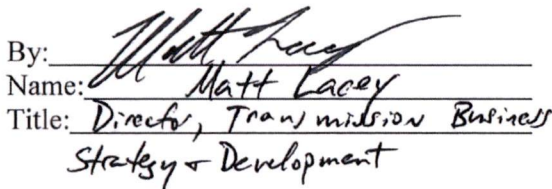 By: Matt Lacey
Name: Matt Lacey
Title: Director, Transmission Business
Strategy & Development